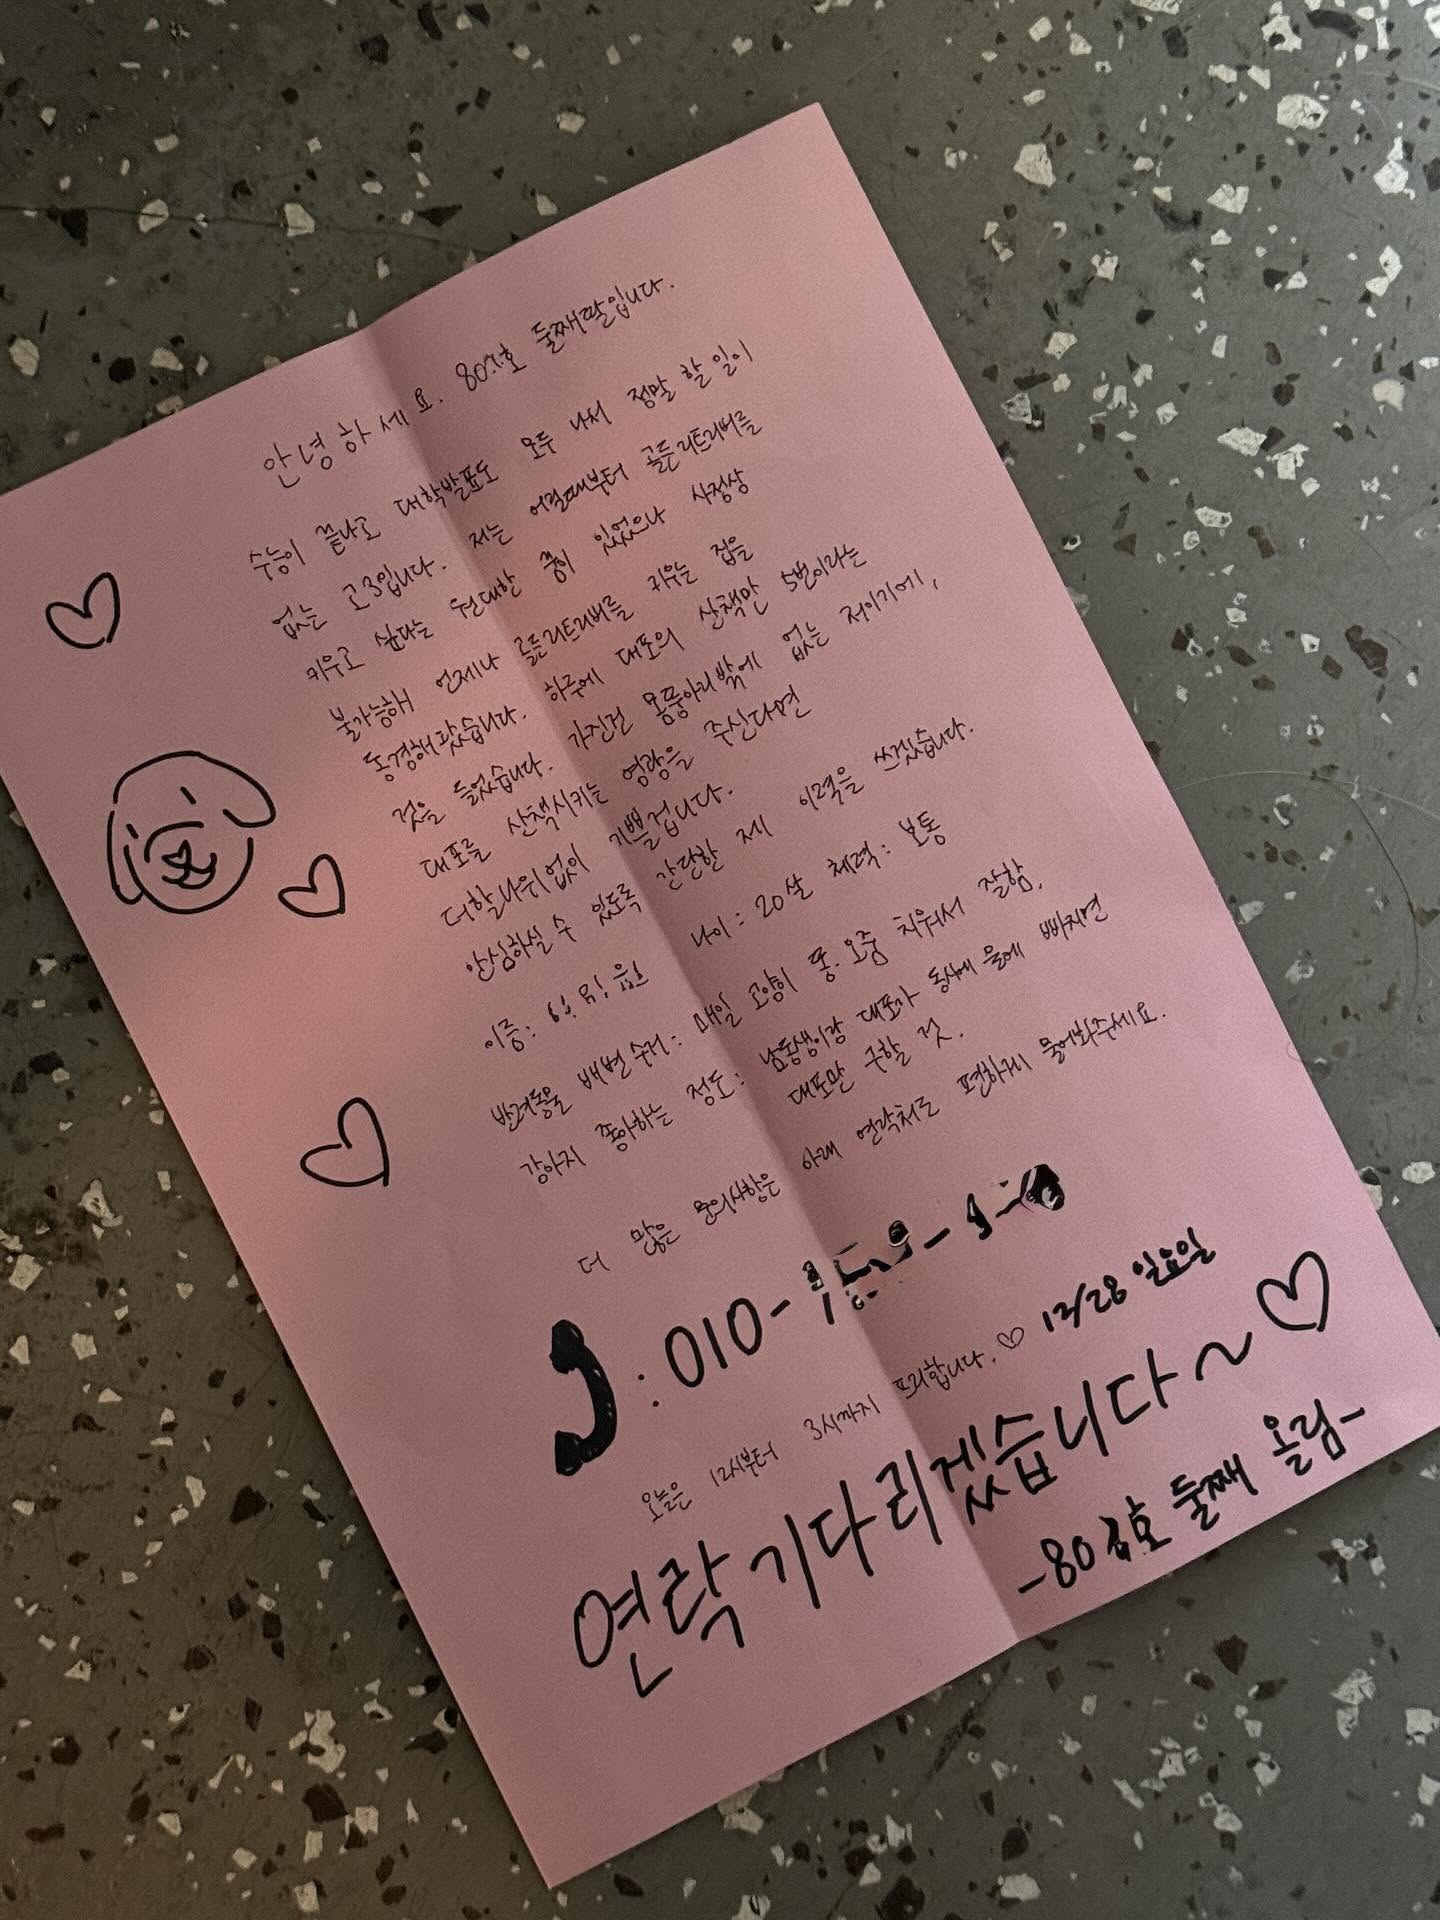 안녕하세요. 80호 둘째딸입니다.
수능이 끝나고 대학발표도 모두 나서 정말 할 일이
없는 고3입니다. 저는 어릴때부터 골든리트리버를
키우고 싶다는 원대한 꿈이 있었으나 사정상
불가능해 언제나 골든리트리버를 키우는 집을
동경해왔습니다. 하루에 대포의 산책만 5번이라는
것을 들었습니다. 가진건 몸뚱아리밖에 없는 저이기에,
대포를 산책시키는 영광을 주신다면
더할나위없이 기쁠겁니다.
안심하실 수 있도록 간단한 제 이력을 쓰겠습니다.
이름: 나이: 20살 체력: 보통
반려동물 배변 수거: 매일 고양이 똥.오줌 치워서 잘함.
강아지 좋아하는 정도: 남동생이랑 대포가 동시에 물에 빠지면
대포만 구할 것.
더 많은 문의사항은 아래 연락처로 편하게 물어봐주세요.
: 010-
오늘은 12시부터 3시까지 프리합니다.♡ 12/28 일요일
연락 기다리겠습니다~♡
-80호 둘째 올림-